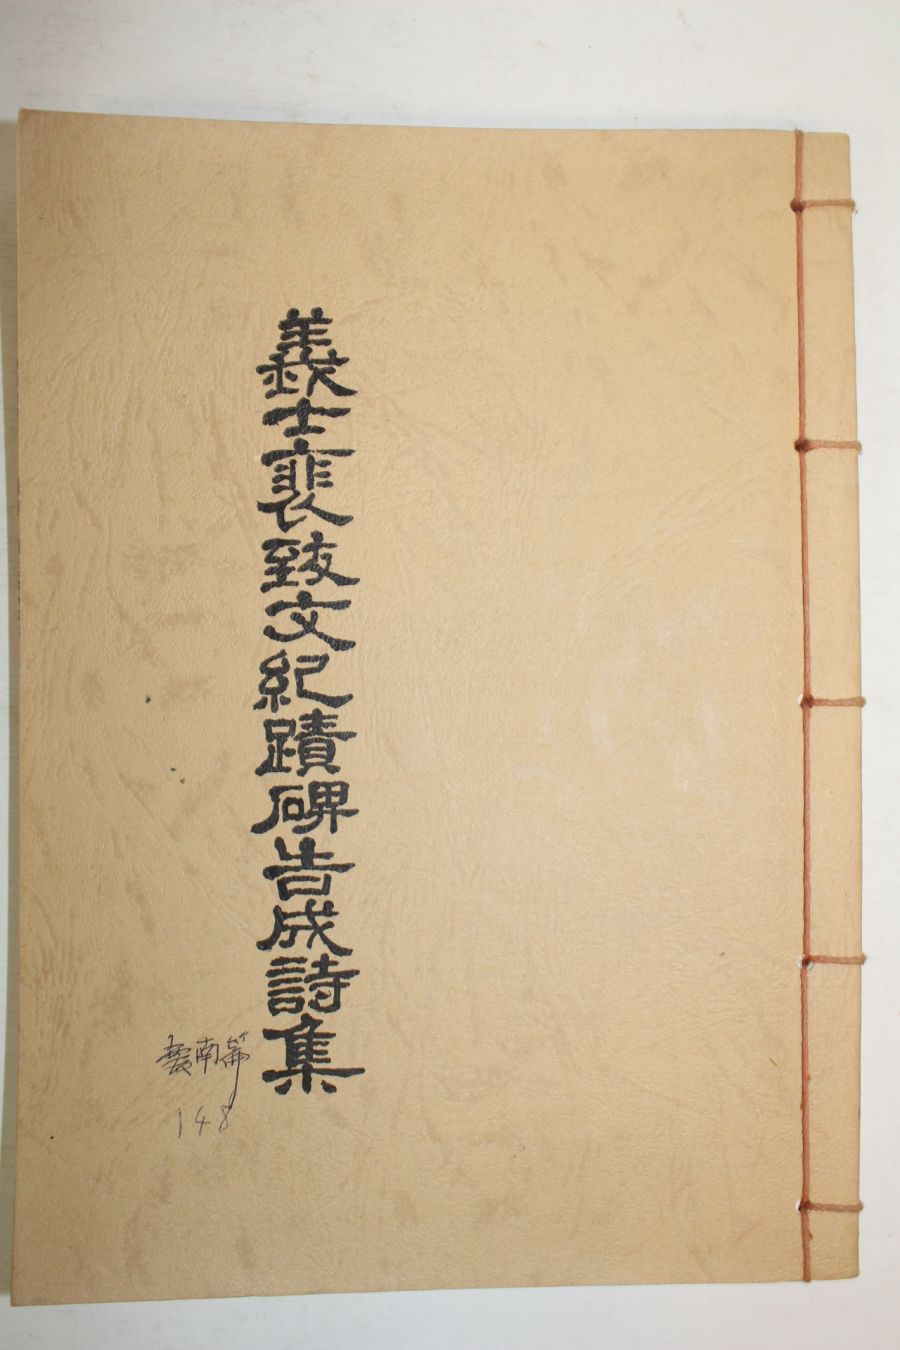 義士裵致文紀蹟碑告成詩集
南篇
148